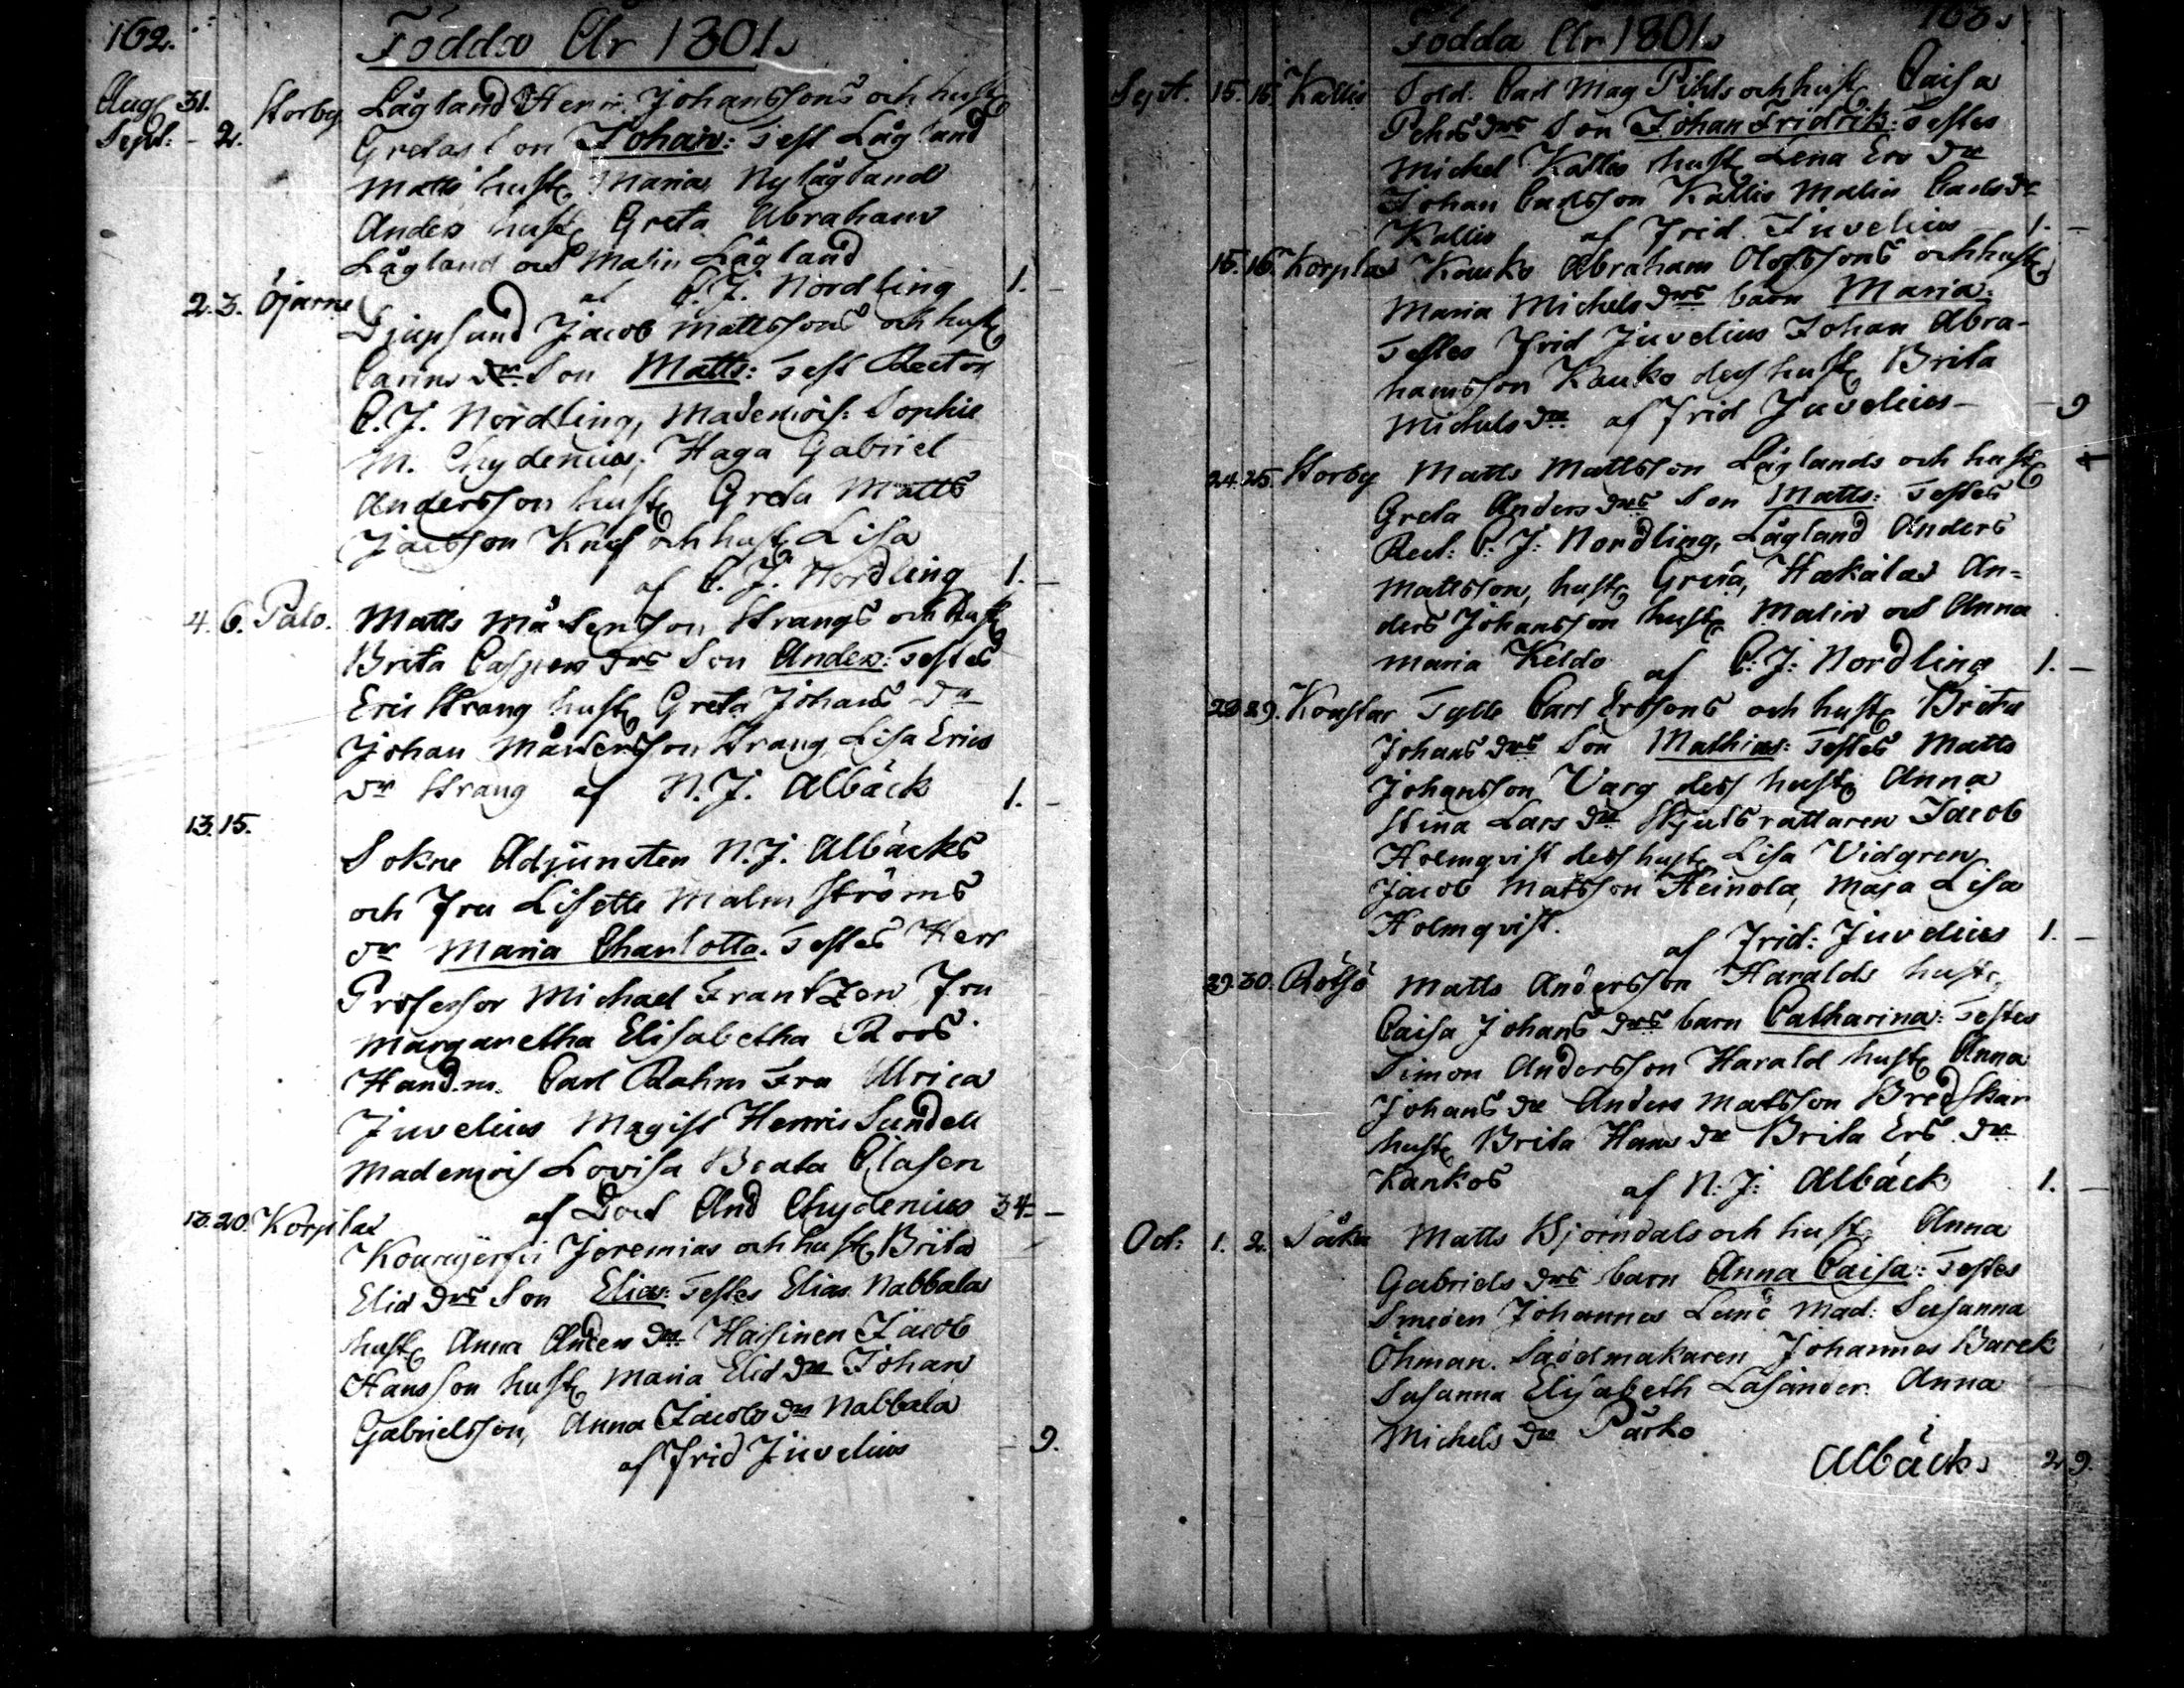 162.
Födda År 1801.
Aug. 31.
Sept. - 2. Storby Lågland Henr. Johanssons och hust
Gretas Son Johan: Test Lågland
Matts hust Maria, Nylågland
Anders hust Greta Abrahams
Lågland och Malin Lågland
af C. J. Nordling 1. -
2. 3. Öjarne Djupsund Jacob Mattssons och hust
Carins Son Matts: Test Rector
C. J. Nordling, Mademois: Sophie
M. Chydenius, Haga Gabriel
Andersson hust Greta Matts
Jacobson Knif och hust Lisa
af C. J. Nordling 1. -
4. 6. Palo. Matts Mårtenson Strangs och hust
Brita Caspers drs Son Anders: Testes
Eric Strang hust Greta Johans dr
Johan Mårtensson Strang, Lisa Erics
dr Strang af N. J. Albäck 1. -
13. 15.
Sokne Adjuncten N. J. Albäcks
och Fru Lisette Malmströms
dr Maria Charlotta. Testes Herr
Professor Michael Frantzen Fru
Margaretha Elisabetha Roos.
Hand.m. Carl Rahm Fru Ulrica
Juvelius Magist Henric Sundell
Mademois Lovisa Beata Clasen
af Doct And Chydenius 34 -
13. 20. Korplax
Jeremias och hust Brita
Elid drs Son Elias: Testes Elias Nabbala
hust Anna Anders dr Haisinen Jacob
Hansson hust Maria Elid dr Johan
Gabrielsson, Anna Jacobs dr Nabbala
af Frid Juvelius - 9.
163.
Födda År 1801.
Sept. 15. 16. Kallis Sold. Carl Mag Pihls och hust Caisa
Pehrs drs Son Johan Fridrik: Testes
Michel Kallis hust Lena Ers dr
Johan Carlsson Kallis Malin Carls dr
Kallis af Frid Juvelius 1. -
15. 16. Korplax Kauko Abraham Olofssons och hust
Maria Michels drs barn Maria:
Testes Frid Juvelius Johan Abra-
hamsson Kauko dess hust Brita
Michels dr af Frid Juvelius - - 9
24. 25. Storby Matts Mattsson Låglands och hust
Greta Anders drs Son Matts: Testes
Rect: C. J: Nordling, Lågland Anders
Mattsson, hust Greta, Hakalax An=
ders Johansson hust Malin och Anna
Maria Keldo af C: J: Nordling 1. -
29. Tylle Carl Erssons och hust Brita
Johans drs Son Mathias: Testes Matts
Johansson Varg dess hust Anna
Stina Lars dr Skjutsrattaren Jacob
Holmqvist dess hust Lisa Vidgren
Jacob Matsson Heinola, Maja Lisa
Holmqvist. af Frid: Juvelius 1. -
29. 30. Rötsö Matts Andersson Haralds hust
Caisa Johans drs barn Catharina: Testes
Simon Andersson Harald hust Anna
Johans dr Anders Matsson Bredskar
hust Brita Hans dr Brita Ers dr
Kankos af N: J: Albäck 1. -
Oct: 1. 2. Såka Matts Bjorndals och hust Anna
Gabriels drs barn Anna Caisa: Testes
Smeden Johannes Mad: Susanna
Öhman. Sadelmakaren Johannes Barck
Susanna Elisabeth Lasander. Anna
Michels dr Parko
Albäck 2 9.